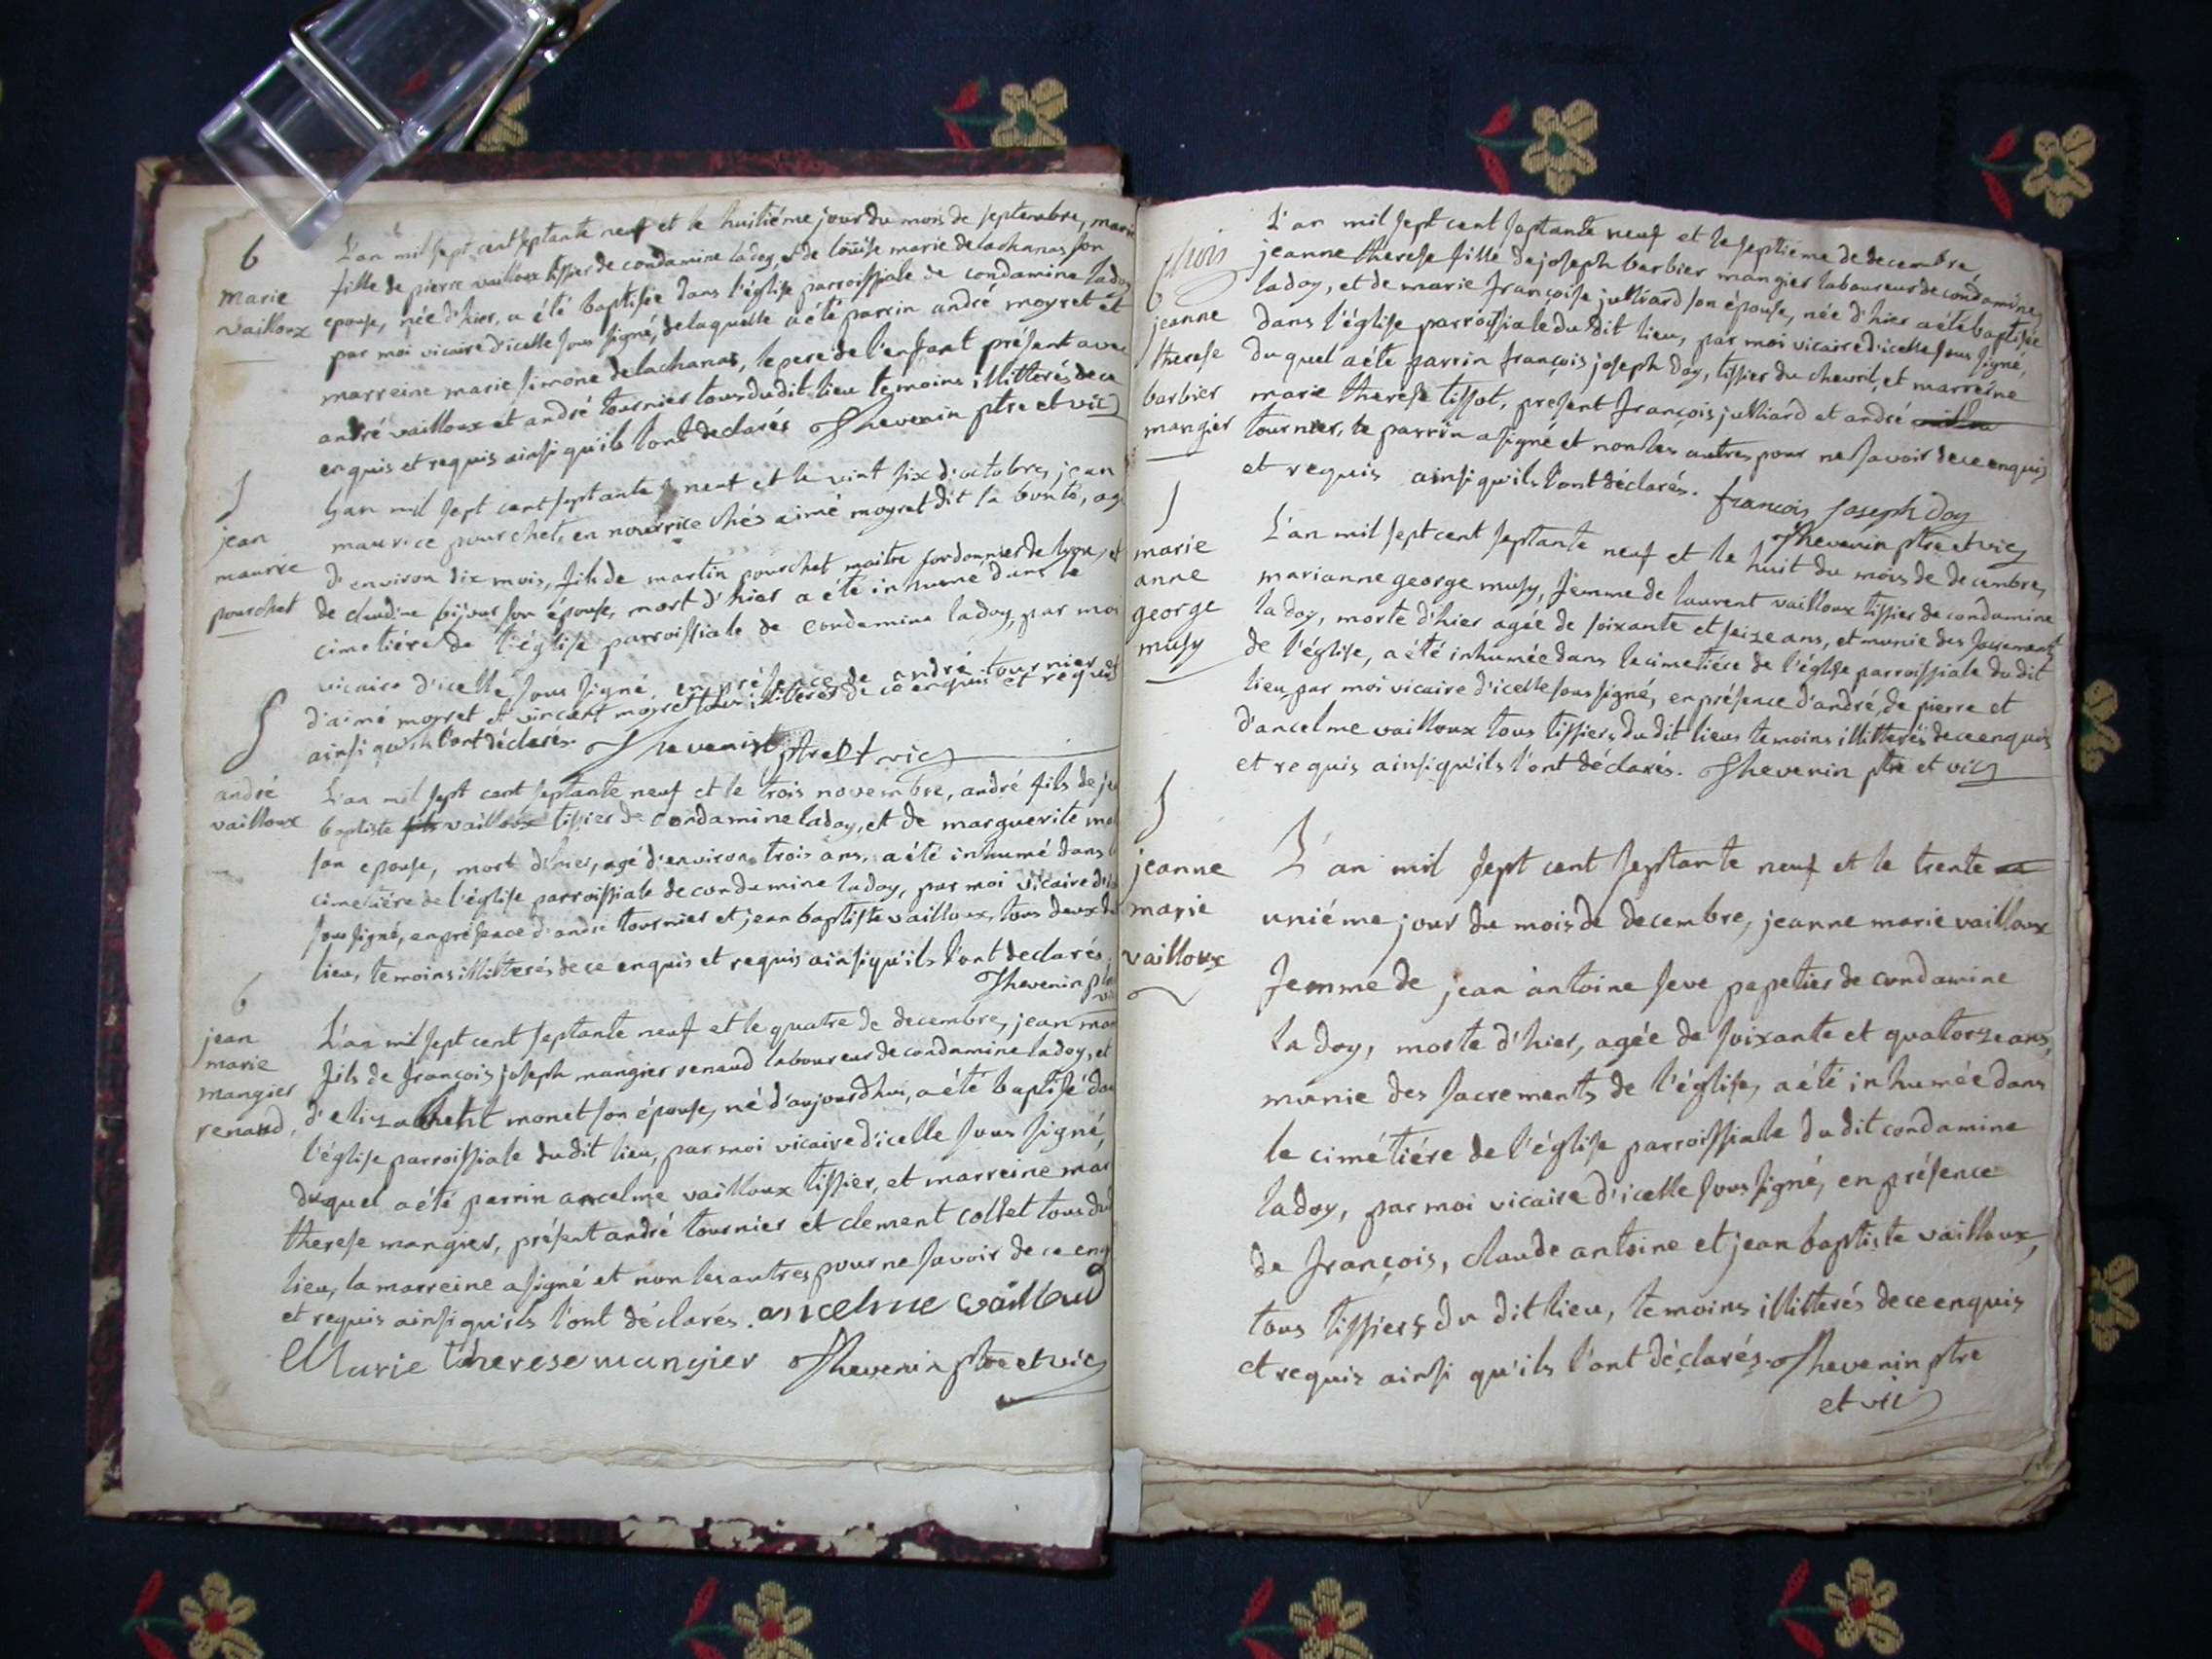 b
marie
vailloux
L'an mil sept cent septante neuf et le huitiéme jour du mois de septembre, marie
fille de pierre vailloux tissier de condamine ladoy, et de loüise marie delachanas son
epouse, née d'hier, a été baptisée dans l'église parroissiale de condamine ladoy
par moi vicaire d'icelle sous signé, de laquelle a été parrin andré moyret et
marreine marie simone delachanas, le pere de l'enfant présent avec
andré vailloux et andré tournier tous du dit lieu temoins illitterés de ce
enquis et requis ainsi qu'ils l'ont declarés Thevenin ptre et vic
S
jean
maurice
pourchet
L'an mil sept cent septante neuf et le vint six d'octobre, jean
maurice pourchet, en nourrice chés aimé moyret dit la bonté, agé
d'environ dix mois, fils de martin pourchet maitre cordonnier de lyon, et
de claudine bijour son épouse, mort d'hier a été inhumé dans le
cimetiére de l'église parroissiale de condamine ladoy, par moi
vicaire d'icelle sous signé, en présence de andré tournier
d'aimé moyret et vincent moyret tous illitterés de ce enquis et requis
ainsi qu'ils l'ont déclarés. Thevenin ptre et vic
S
andré
vailloux
L'an mil sept cent septante neuf et le trois novembre, andré fils de
baptiste fils vailloux tissier de condamine ladoy, et de marguerite
son epouse, mort d'hier, agé d'environ trois ans, a été inhumé dans
cimetiére de l'église parroissiale de condamine ladoy, par moi vicaire
sous signé, en présence d'andré tournier et jean baptiste vailloux, tous deux du
lieu, temoins illitterés de ce enquis et requis ainsi qu'ils l'ont declarés
Thevenin ptre
vic
b
jean
marie
mangier
renaud
L'an mil sept cent septante neuf et le quatre de decembre, jean marie
fils de françois joseph mangier renaud laboureur de condamine ladoy, et
d'elizabeht monet son épouse, né d'aujourdhui, a été baptisé dans
l'église parroissiale du dit lieu, par moi vicaire d'icelle sous signé,
duquel a été parrin ancelme vailloux tissier, et marreine marie
therese mangier, présent andré tournier et clement collet tous du
lieu, la marreine a signé et non les autres pour ne savoir de ce enquis
et requis ainsi qu'ils l'ont déclarés. ancelme vailloud
Marie therese mangier Thevenin ptre et vic
b
jeanne
therese
barbier
mangier
L'an mil sept cent septante neuf et le septieme de decembre,
jeanne therese fille de joseph barbier mangier laboureur de condamine
ladoy, et de marie françoise julliard son épouse, née d'hier a été baptisée
dans l'église parroissiale du dit lieu, par moi vicaire d'icelle sous signé,
du quel a été parrin françois joseph Doy, tissier du chevril, et marreine
marie therese tissot, present françois julliard et andré
tournier, le parrin a signé et non les autres pour ne savoir de ce enquis
et requis ainsi qu'ils l'ont déclarés. françois Joseph Doy
Thevenin ptre et vic
S
marie
anne
george
musy
L'an mil sept cent septante neuf et le huit du mois de decembre,
marianne george musy, femme de laurent vailloux tissier de condamine
ladoy, morte d'hier agée de soixante et seize ans, et munie des sacrements
de l'église, a été inhumée dans le cimetiére de l'église parroissiale du dit
lieu, par moi vicaire d'icelle sous signé, en présence d'andré, de pierre et
d'ancelme vailloux tous tissiers du dit lieu temoins illitterés de ce enquis
et requis ainsi qu'ils l'ont déclarés. Thevenin ptre et vic
S
jeanne
marie
vailloux
L'an mil sept cent septante neuf et le trente
uniéme jour du mois de decembre, jeanne marie vailloux
femme de jean antoine seve papetier de condamine
ladoy, morte d'hier, agée de soixante et quatorze ans,
munie des sacrements de l'église, a été inhumée dans
le cimétiére de l'église parroissiale du dit condamine
ladoy, par moi vicaire d'icelle sous signé, en présence
de françois, claude antoine et jean baptiste vailloux,
tous tissiers du dit lieu, temoins illitterés de ce enquis
et requis ainsi qu'ils l'ont déclarés. Thevenin ptre
et vic